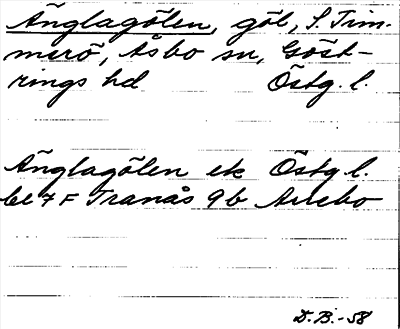 Änglagölen, göl, S. Tim-
merö, Åsbo sn, Göst-
rings hd Östg. l.
Änglagölen ek Östg l.
bl 7 F Tranås 9b
D. B. -58